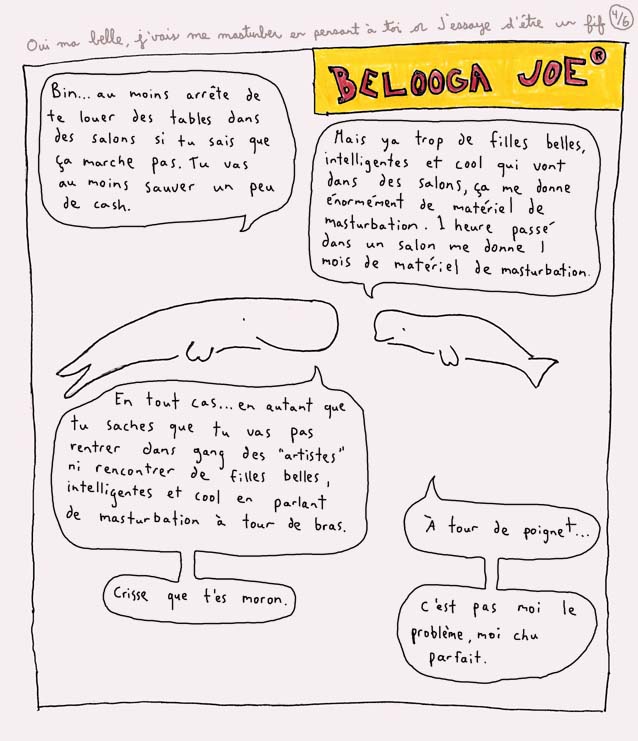 Oui ma belle, j'vais me masturber en pensant à toi or J'essaye d'être un fif 4/6
BELOOGA JOE®
Bin... au moins arrête de
te louer des tables dans
des salons si tu sais que
ça marche pas. Tu vas
au moins sauver un peu
de cash.
Mais ya trop de filles belles,
intelligentes et cool qui vont
dans des salons, ça me donne
énormément de matériel de
masturbation. 1 heure passé
dans un salon me donne 1
mois de matériel de masturbation.
En tout cas... en autant que
tu saches que tu vas pas
rentrer dans gang des "artistes"
ni rencontrer de filles belles,
intelligentes et cool en parlant
de masturbation à tour de bras.
Crisse que t'es moron.
À tour de poignet...
C'est pas moi le
problème, moi chu
parfait.